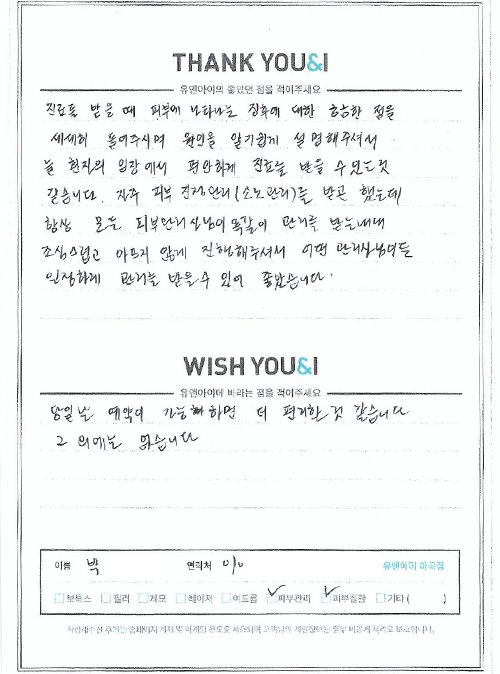 THANK YOU&I
유앤아이의 좋았던 점을 적어주세요
진료를 받을 때 피부에 나타나는 징후에 대한 궁금한 점을
세세히 들어주시며 원인을 알기쉽게 설명해주셔서
늘 환자의 입장에서 편안하게 진료를 받을 수 있는것
같습니다. 자주 피부 진정관리(소노관리)를 받곤 했는데
항상 모든 피부관리사님이 똑같이 관리를 받는내내
조심스럽고 아프지 않게 진행해주셔서 어떤 관리사님이든
일정하게 관리를 받을 수 있어 좋았습니다.
WISH YOU&I
유앤아이에 바라는 점을 적어주세요
당일날 예약이 가능하면 더 편리할 것 같습니다
그 외에는 없습니다
이름 박 연락처 010 유앤아이 마곡점
보톡스 필러 제모 레이저 여드름 피부관리 피부질환 기타 ( )
작성해주신 후기는 홈페이지 게재 및 마케팅 용도로 사용되며 고객님의 개인정보는 일부 비공개 처리로 보호됩니다.